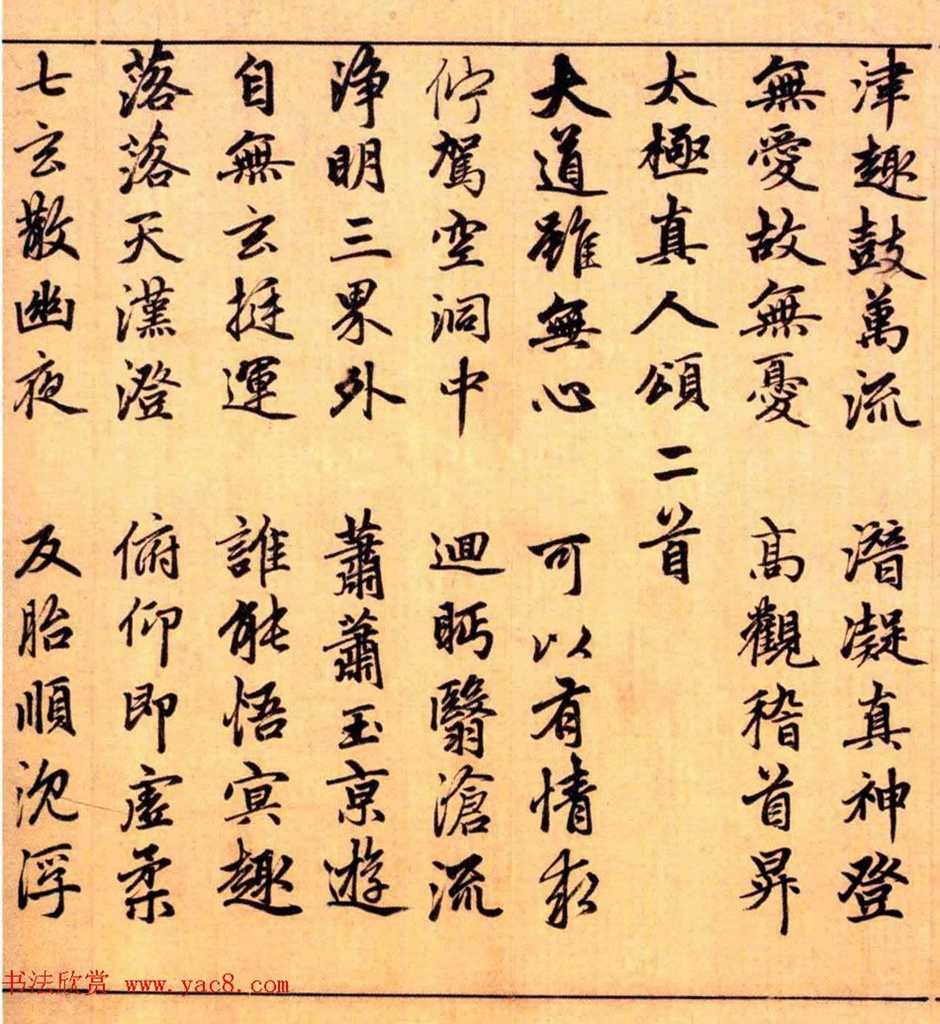 津趣鼓萬流 潛凝真神登
無愛故無憂 高觀稽首昇
太極真人頌二首
大道雖無心 可以有情求
佇駕空洞中 迴眄翳滄流
淨明三界外 蕭蕭玉京遊
自無玄挺運 誰能悟冥趣
落落天漢澄 俯仰即虛柔
七玄散幽夜 反胎順沉浮
书法欣赏 www.yac8.com